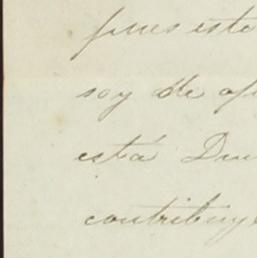 pues este
soy de opi
está Du
contribuy